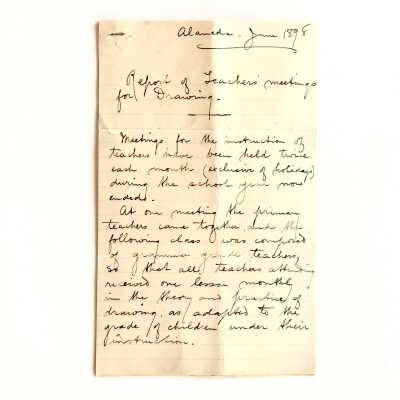 Alameda. June 1898
Report of Teachers' meetings
for Drawing.
Meetings for the instruction of
teachers have been held twice
each month (exclusive of holidays)
during the school year now
ended.
At one meeting the primary
teachers came together and the
following class was composed
of grammar grade teachers,
so that all teachers attending
received one lesson monthly
in the theory and practice of
drawing. as adapted to the
grade of children under their
instruction.